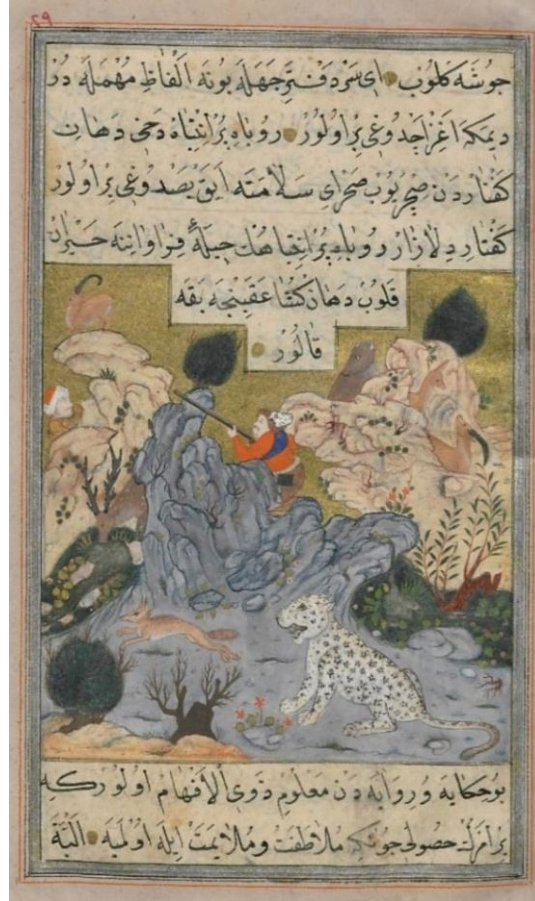 ٤٩
جوشه كلوب اى سر دفتر جهله بونه الفاظ مهمله در
ديمكه اغز اچدوغى بر اولور روباه پر انتباه دخى دهان
كفتاردن صچريوب صحراى سلامته ايق بصدوغى بر اولور
كفتار دلازار روباه پر
حيران
قلوب دهان كشا عقبنجه بقه
قالور
بو حكايه و روايه دن معلوم ذوى الافهام اولور كه
بر امرك حصولى چونكه ملاطفت وملايمت ايله اولميه البتة